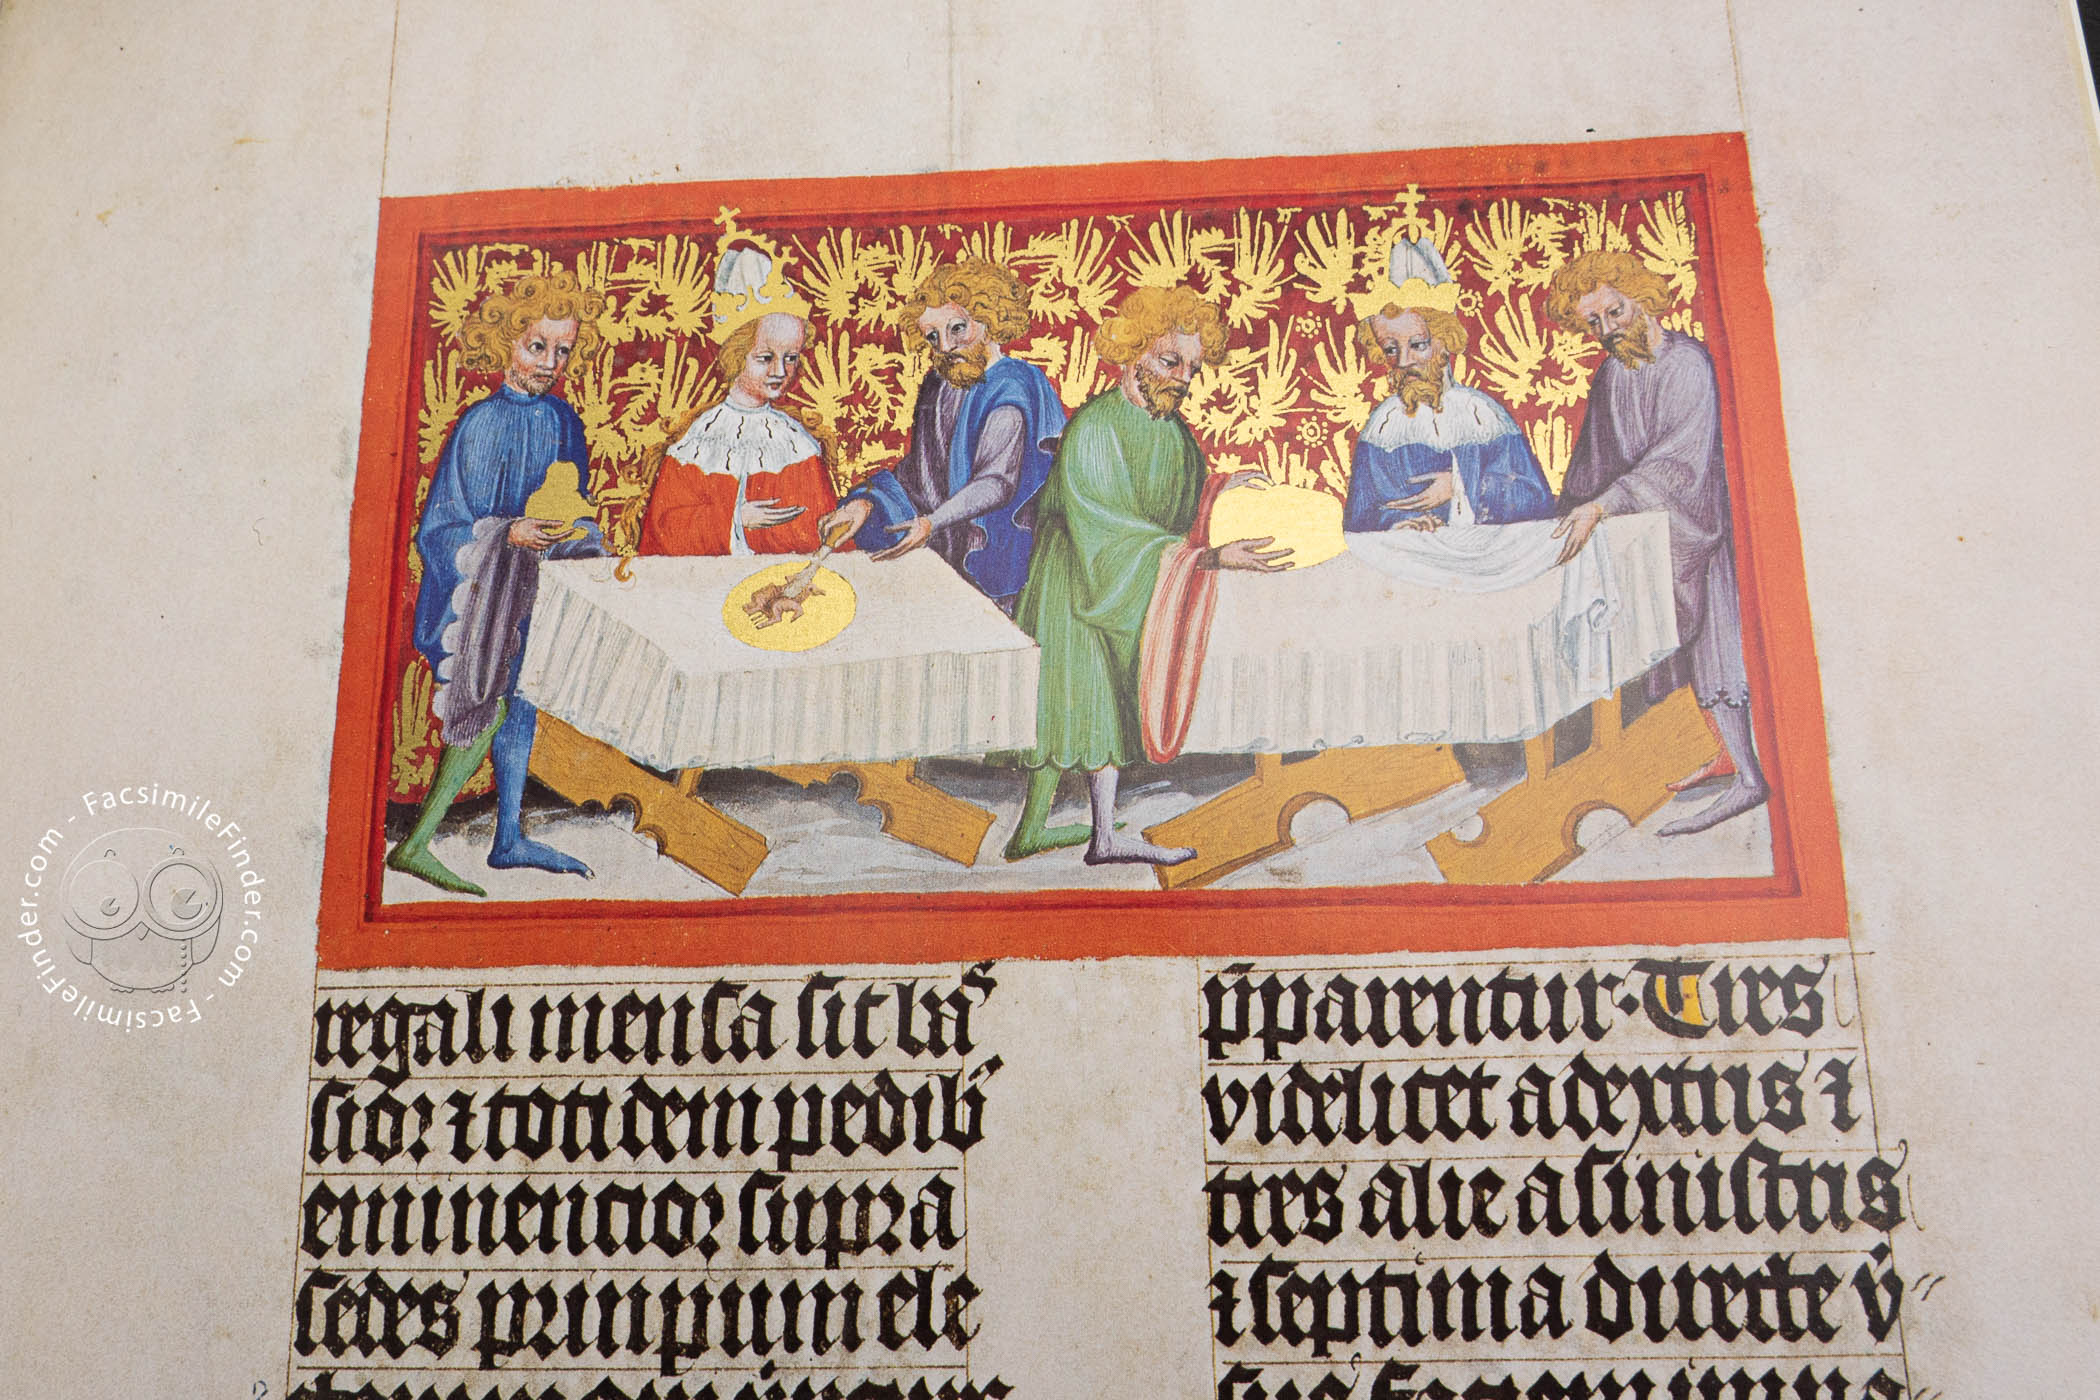 regali mensa sit bas
sior ⁊ totidem pedibꝰ
eminencior supra
sedes prinpum ele
p̄parentur · Tres
videlicet a dextris ⁊
tres alie a sinistris
⁊ septima directe v̾〃
FacsimileFinder.com - FacsimileFinder.com -